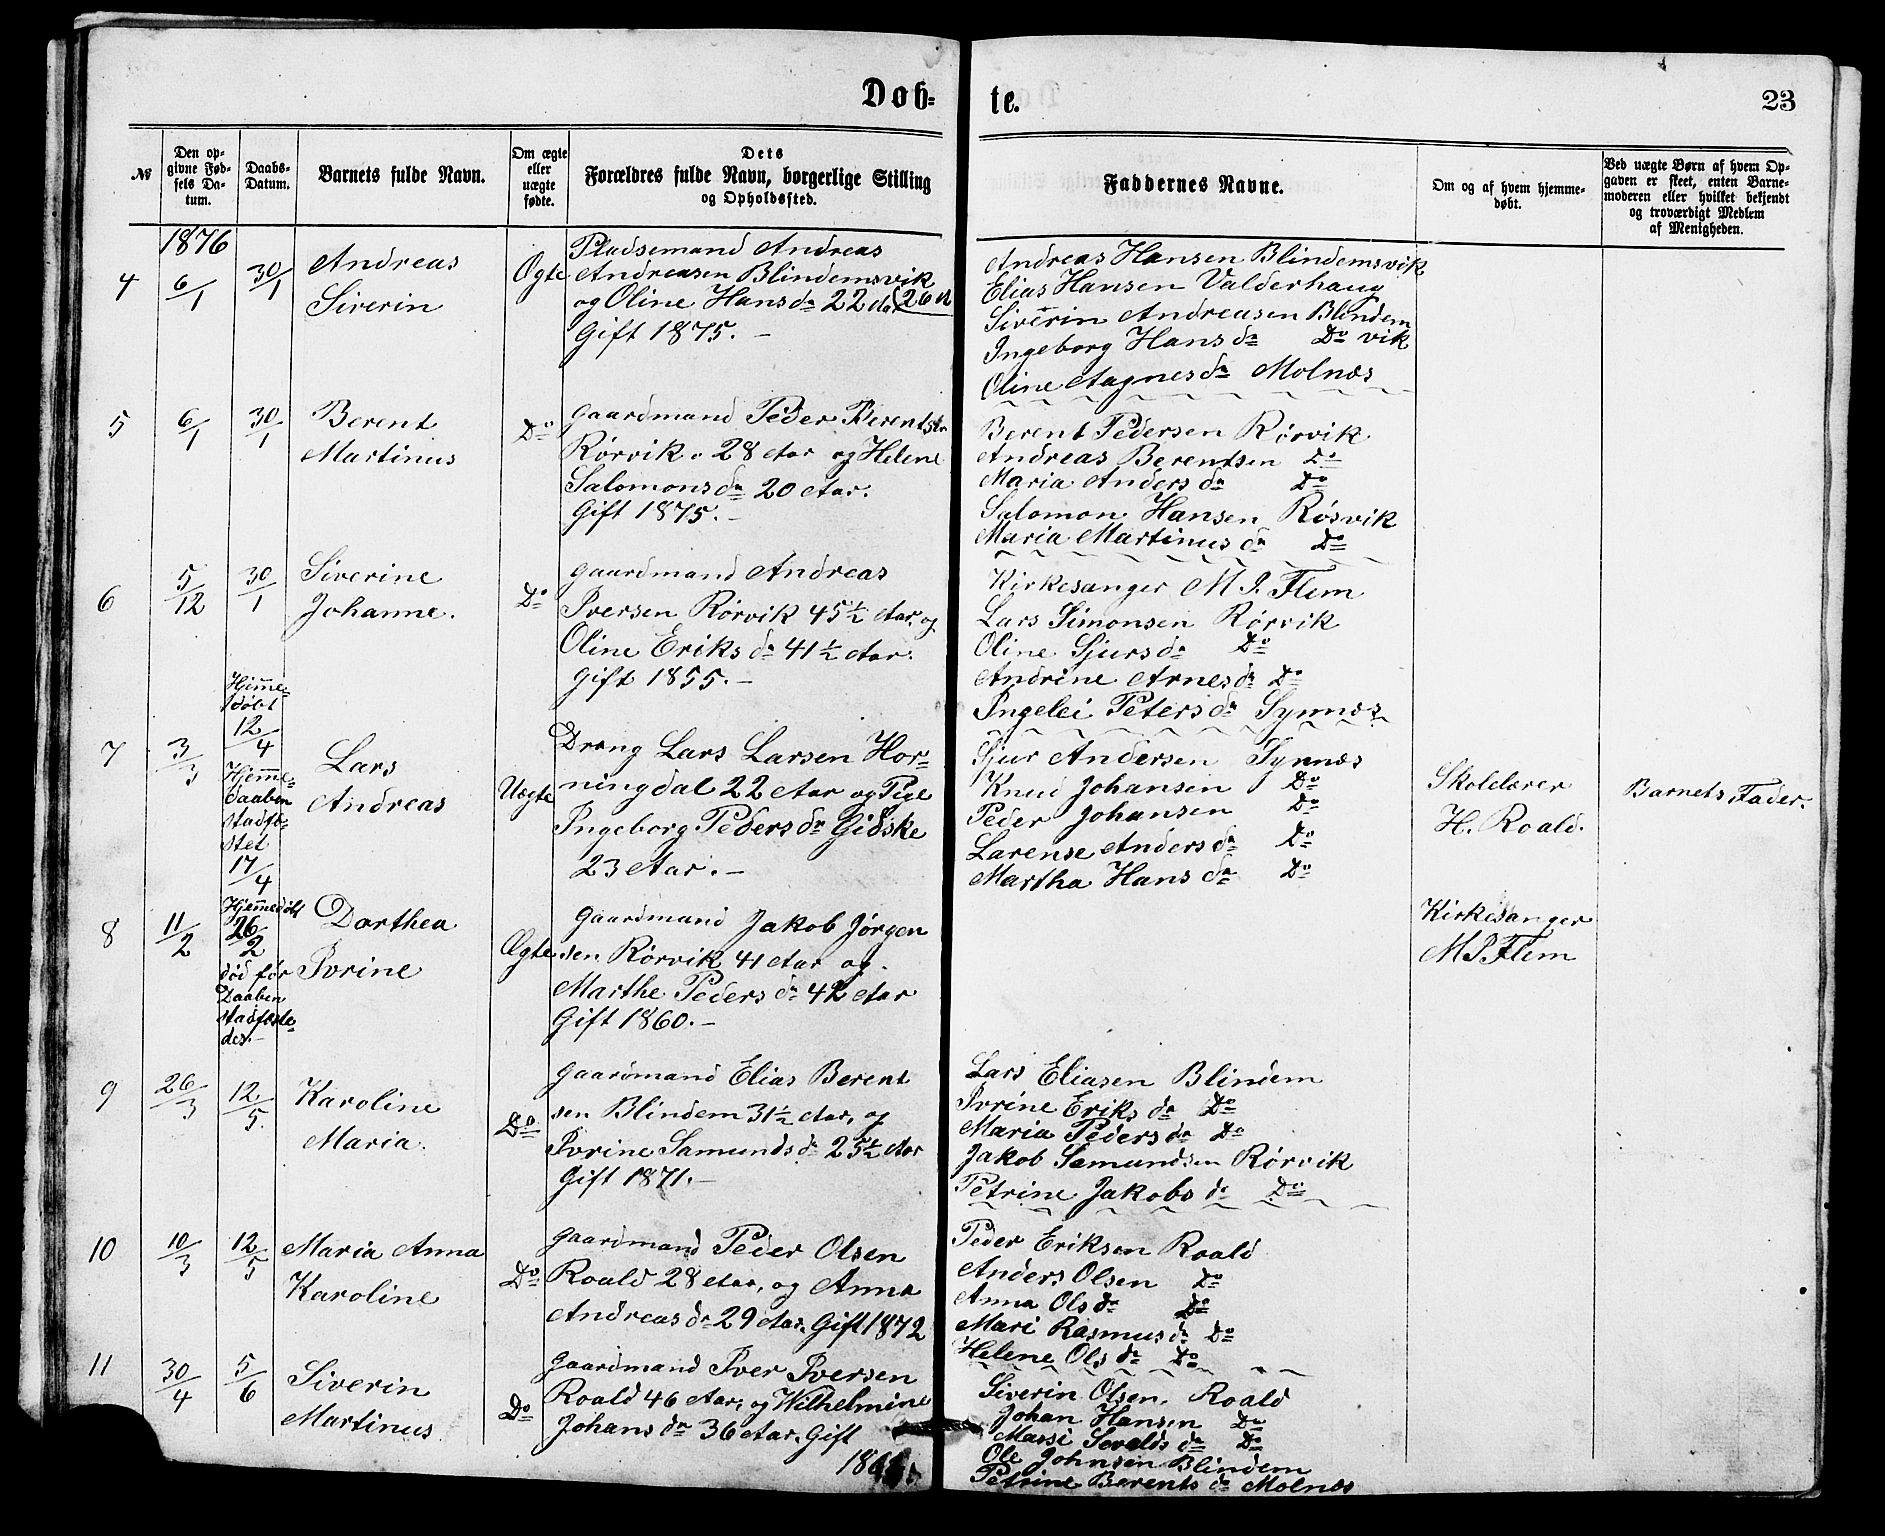 Døb-
te.
23
№
Den op-
givne Fød-
sels Da-
tum.
Daabs-
Datum.
Barnets fulde Navn.
Om ægte
eller
uægte
fødte.
Dets
Forældres fulde Navn, borgerlige Stilling
og Opholdssted.
Faddernes Navne.
Om og af hvem hjemme-
døbt.
Ved uægte Børn af hvem Op-
gaven er skeet, enten Barne-
moderen eller hvilket bekjendt
og troværdigt Medlem
af Menigheden.
1876
4
6/1
30/1
Andreas
Siverin
Ægte
Pladsemand Andreas
Andreasen Blindemsvik
og Oline Hansdr 22 Aar (26 A
Gift 1875.-
Andreas Hansen Blindemsvik
Elias Hansen Valderhaug
Siverin Andreasen Blindem
Ingeborg Hansdr Do vik
Oline Aagnesdr Molnæs
5
6/1
30/1
Berent
Martinus
Do
Gaardmand Peder Berentsen
Rørvik 28 Aar og Helene
Salomonsdr 20 Aar.
Gift 1875.-
Berent Pedersen Rørvik
Andreas Berentsen Do
Maria Andersdr Do
Salomon Hansen Røsvik
Maria Martinusdr Do
6
5/12
30/1
Siverine
Johanne.
Do
Gaardmand Andreas
Iversen Rørvik 45½ Aar. og
Oline Eriksdr 41½ Aar.
Gift 1855.-
Kirkesanger M. P. Flem
Lars Simonsen Rørvik
Oline Sjursdr Do
Andrine Arnesdr Do
Ingelei Petersdr Synnæs
7
3/3
Hjemme-
døbt
12/4
Hjemme-
daaben
stadfæ-
stet
17/4
Lars
Andreas
Uægte
Dreng Lars Larsen Hor-
ningdal 22 Aar og Pige
Ingeborg Pedersdr Gidske
23 Aar.-
Sjur Andersen Synnæs
Knud Johansen Do
Peder Johansen Do
Larense Andersdr Do
Martha Hansdr Do
Skolelærer
H. Roald.
Barnets Fader.
8
11/2
Hjemmedøbt
26/2
død før
Daaben
stadfæste-
des.-
Dorthea
Ivrine
Ægte
Gaardmand Jakob Jørgen
sen Rørvik 41 Aar og
Marthe Pedersdr 42 Aar
Gift 1860.-
Kirkesanger
M. P. Flem
9
26/3
12/5
Karoline
Maria.
Do
Gaardmand Elias Berent
sen Blindem 31½ Aar, og
Ivrine Samundsdr 25½ Aar
Gift 1871.-
Lars Eliasen Blindem
Ivrine Eriksdr Do
Maria Pedersdr Do
Jakob Semundsen Rørvik
Petrine Jakobsdr Do
10
10/3
12/5
Maria Anna
Karoline
Do
Gaardmand Peder Olsen
Roald 28 Aar, og Anna
Andreasdr 29 Aar. Gift 1872
Peder Eriksen Roald
Anders Olsen Do
Anna Olsdr Do
Mari Rasmusdr Do
Helene Olsdr Do
11
30/4
5/6
Siverin
Martinus
Do
Gaardmand Iver Iversen
Roald 46 Aar, og Wilhelmine
Johansdr 36 Aar. Gift
Siverin Olsen. Roald
Johan Hansen Do
Massi Sevaldsdr Do
Ole Johnsen Blindem
Petrine Berentsdr Molnæs